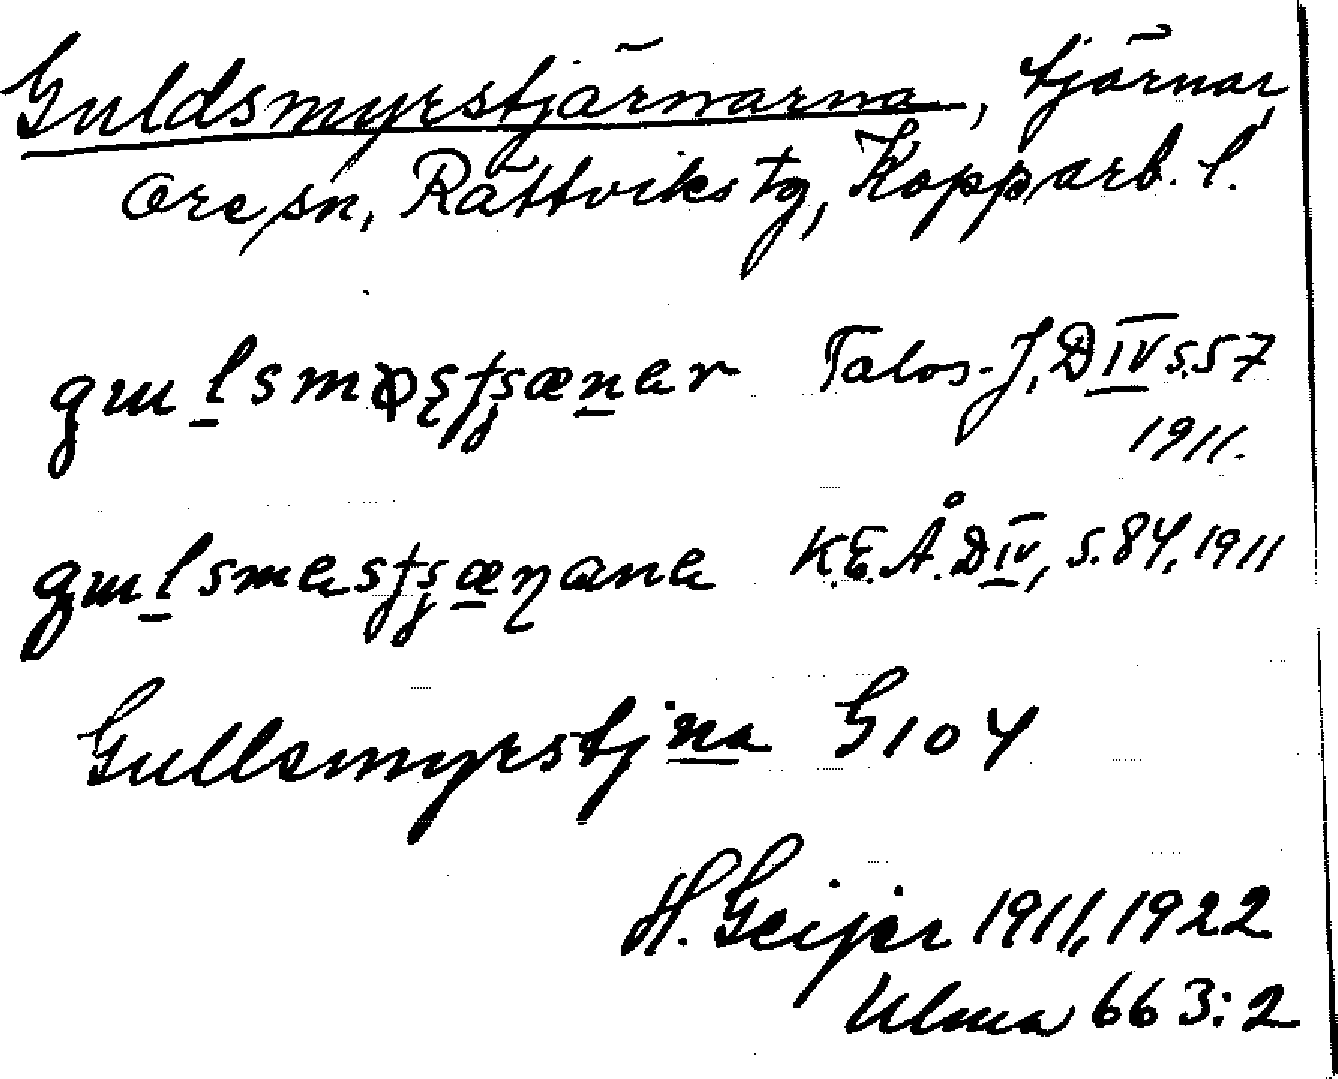 Guldsmyrstjärnarna, tjärnar,
Ore sn, Rättviks tg, Kopparb. l.
Talos-J, D IV s.57
1911.
K.E.Å. D IV, s.84, 1911
Gullsmyrstjna G 104
H. Geijer 1911, 1922
Ulma 663:2